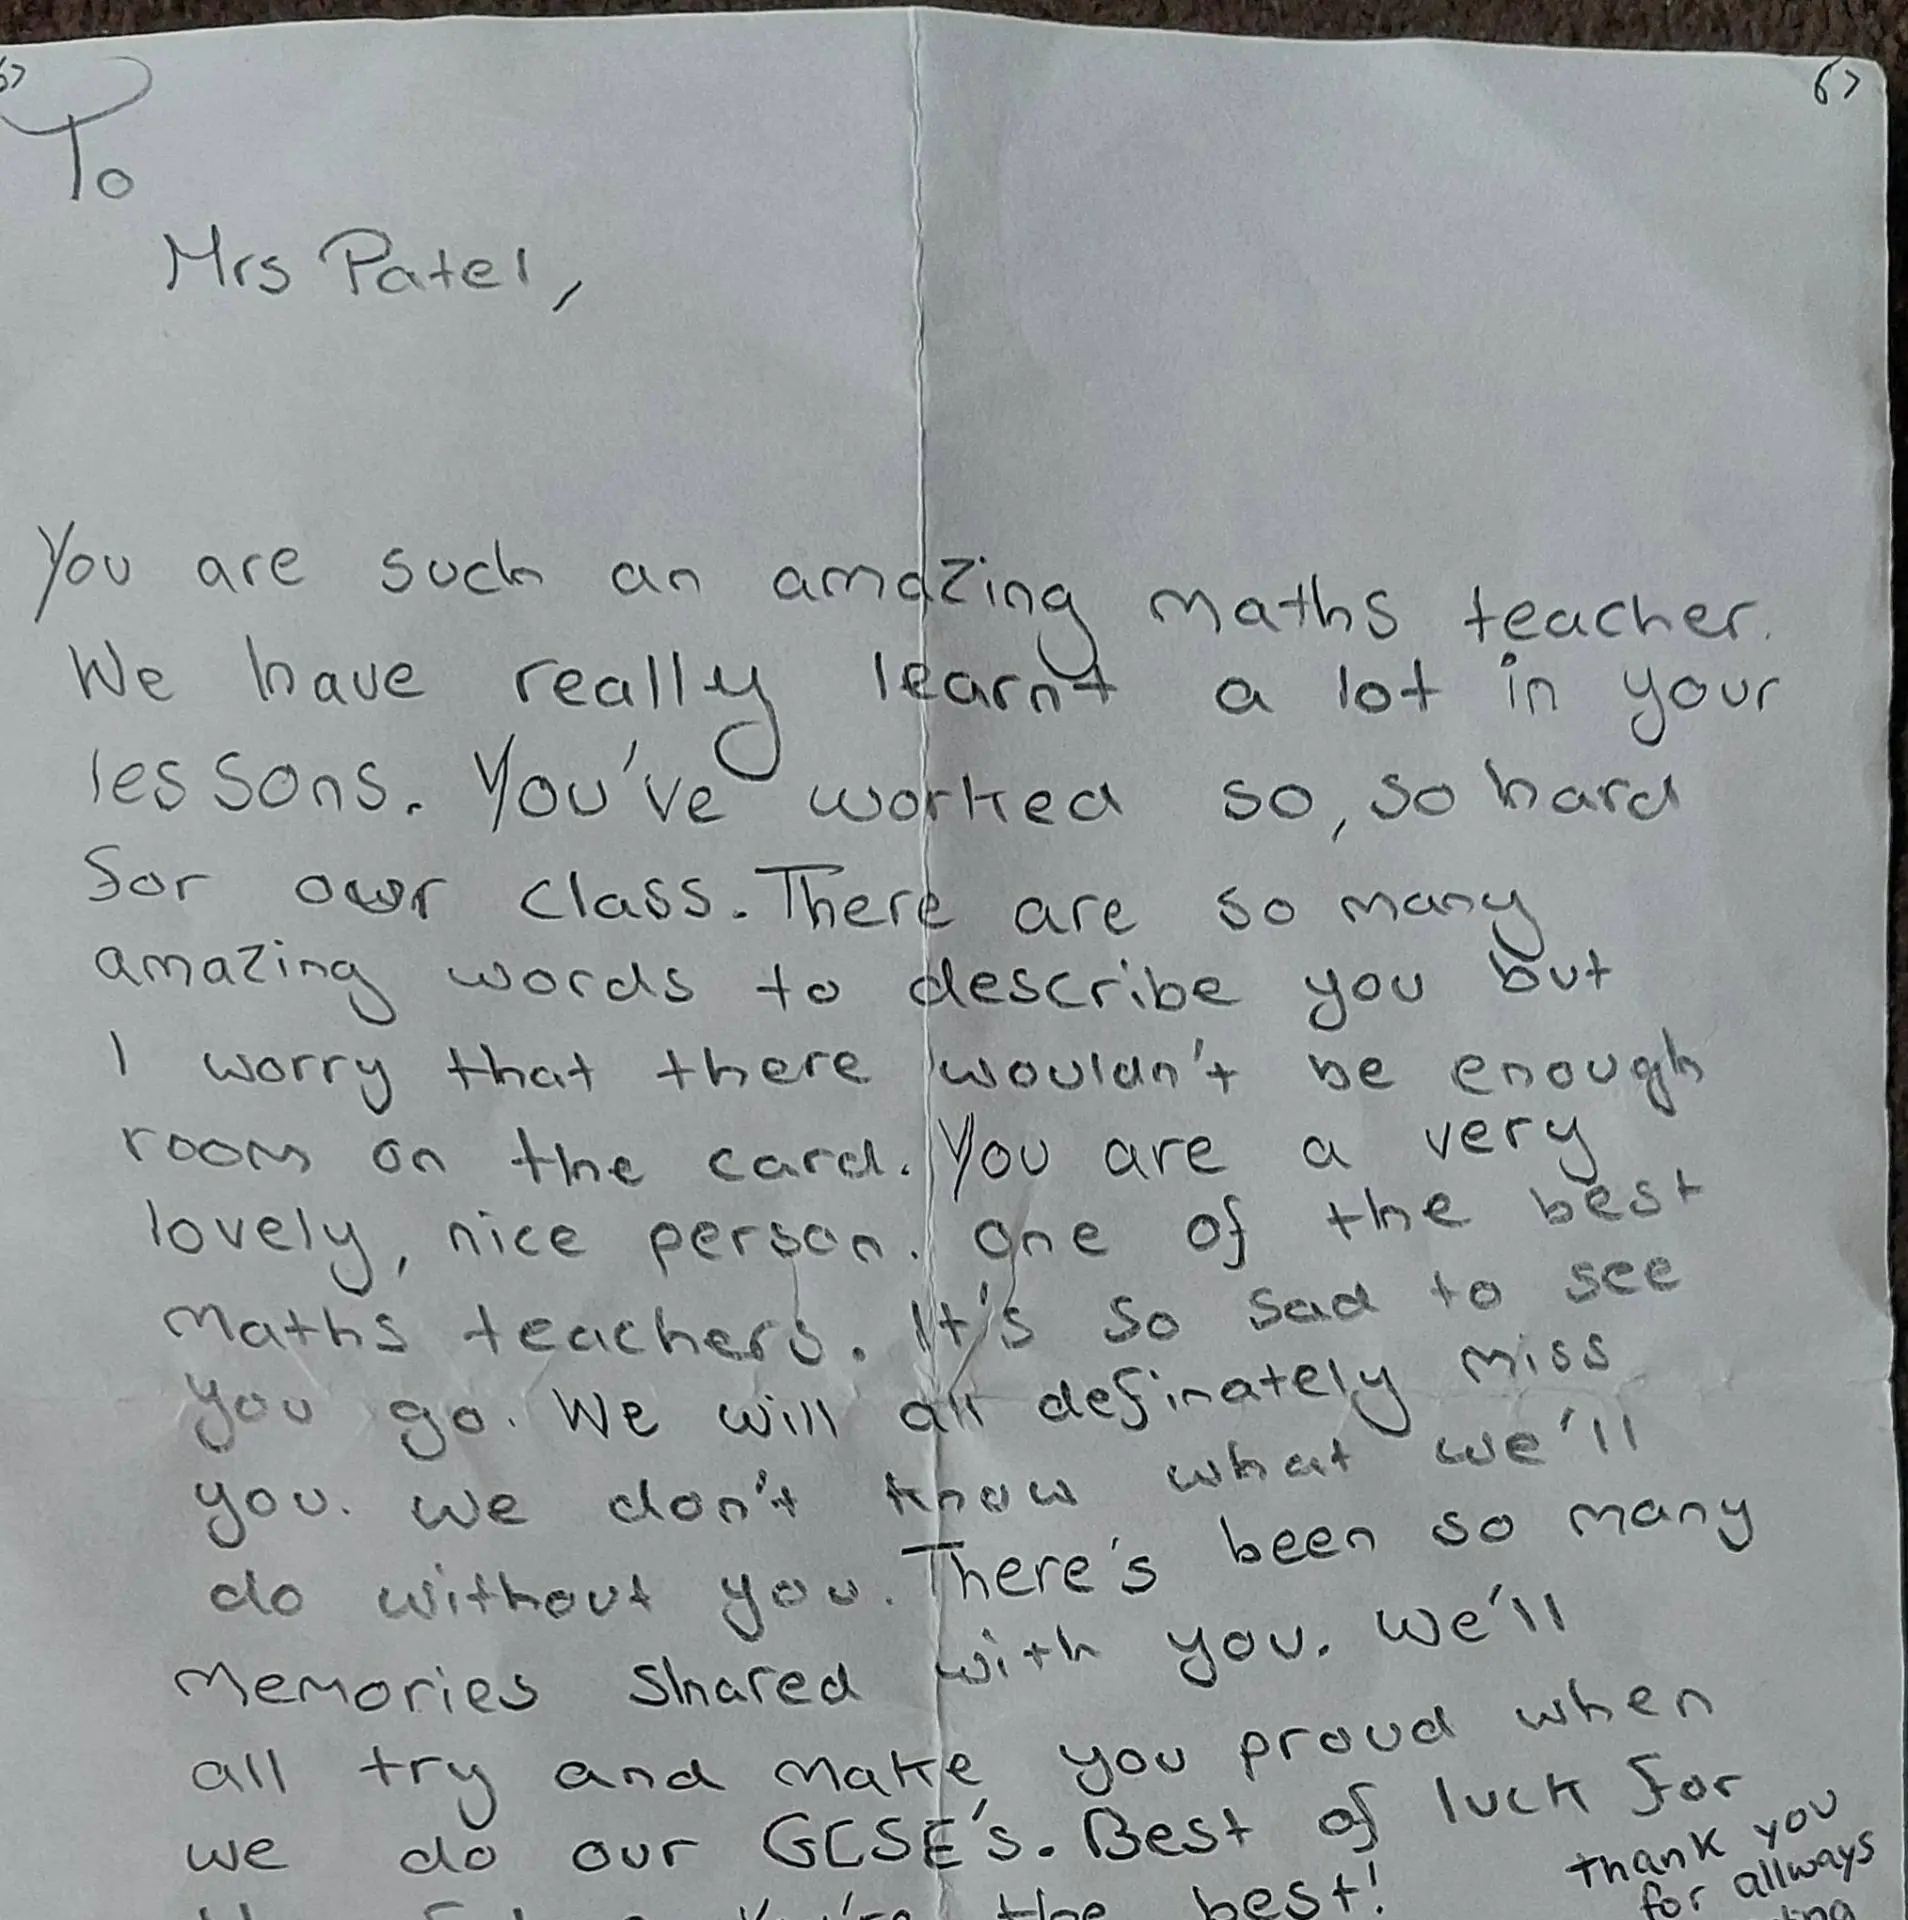 67
To
Mrs Patel,
You are such an amazing maths teacher.
We have really learnt a lot in your
lessons. You've worked so, so hard
for our class. There are so many
amazing words to describe you but
I worry that there wouldn't be enough
room on the card. You are a very
lovely, nice person. One of the best
maths teachers. It's so sad to see
you go. We will all definately miss
you. We don't know what we'll
do without you. There's been so many
memories shared with you. We'll
all try and make you proud when
we do our GCSE's. Best of luck for
You're the best!
thank you
for allways